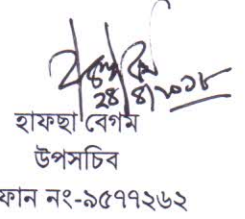 ২৪|৪|২০১৮
হাফছা বেগম
উপসচিব
ফোন নং-৯৫৭৭২৬২